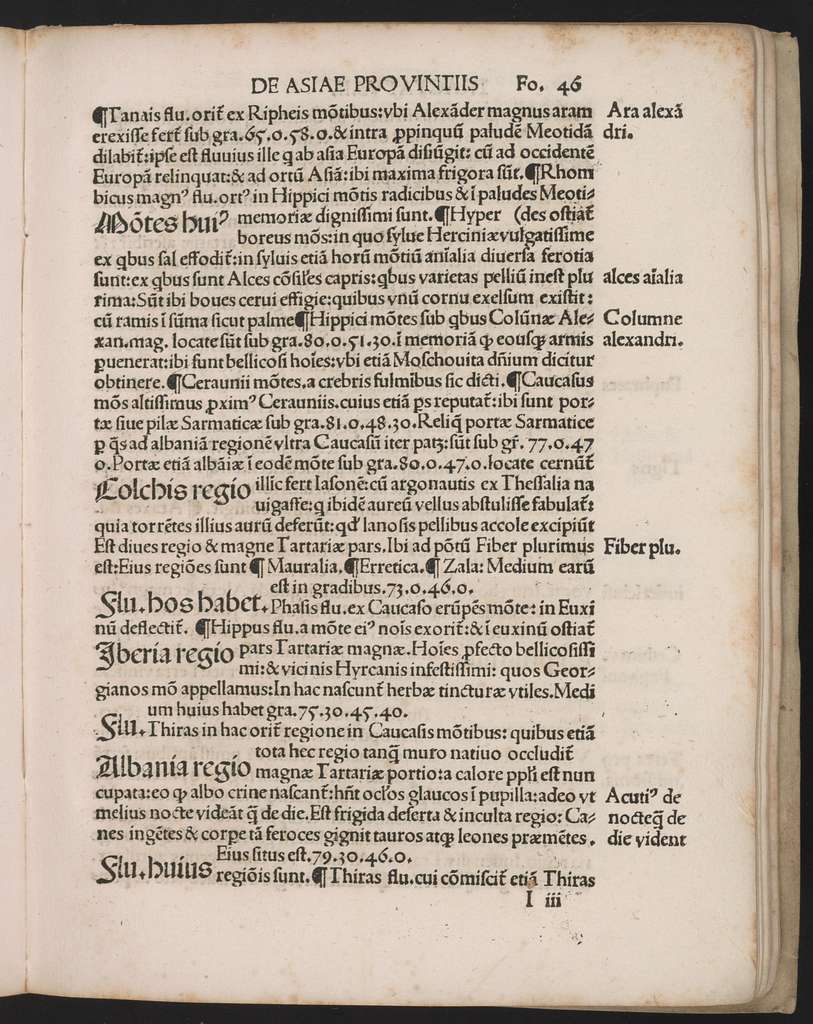 DE ASIAE PROVINTIIS Fo. 46
¶Tanais flu. orit̃ ex Ripheis mõtibus: vbi Alexãder magnus aram
Ara alexã
erexisse fert̃ sub gra.65.0.58.0.& intra ꝓpinquũ paludẽ Meotidã
dri.
dilabit̃: ipse est fluuius ille q ab asia Europã disiũgit: cũ ad occidentẽ
Europã relinquat: & ad ortũ Asiã: ibi maxima frigora sũt. ¶Rhom
bicus magnꝰ flu. ortꝰ in Hippici mõtis radicibus & ĩ paludes Meoti⸗
Mõtes huiꝰ memoriæ dignissimi sunt. ¶Hyper (des ostiat̃
boreus mõs: in quo sylue Herciniæ vulgatissime
ex qbus sal effodit̃: in syluis etiã horũ mõtiũ aĩalia diuersa ferotia
sunt: ex qbus sunt Alces cõsiles capris: qbus varietas pelliũ inest plu
alces aĩalia
rima: Sũt ibi boues cerui effigie: quibus vnũ cornu exelsum existit:
cũ ramis ĩ sũma sicut palme ¶Hippici mõtes sub qbus Colũnæ Ale⸗
Columne
xan. mag. locate sũt sub gra.80.0.51.30. ĩ memoriã ꝙ eousꝗ armis
alexandri.
ꝑuenerat: ibi sunt bellicosi hoĩes: vbi etiã Moschouita dñium dicitur
obtinere. ¶Ceraunii mõtes. a crebris fulmibus sic dicti. ¶Caucasus
mõs altissimus ꝓximꝰ Cerauniis. cuius etiã ps reputat̃: ibi sunt por⸗
tæ siue pilæ Sarmaticæ sub gra.81.0.48.30. Reliq̃ portæ Sarmatice
ꝑ q̃s ad albaniã regionẽ vltra Caucasũ iter patʒ: sũt sub gr̃. 77.0.47
0. Portæ etiã albãiæ ĩ eodẽ mõte sub gra.80.0.47.0. locate cernũt̃
Colchis regio illic fert Iasonẽ: cũ argonautis ex Thessalia na
uigasse: q ibidẽ aureũ vellus abstulisse fabulat̃:
quia torrẽtes illius aurũ deferũt: qđ lanosis pellibus accole excipiũt
Est diues regio & magne Tartariæ pars. Ibi ad põtũ Fiber plurimus
Fiber plu.
est: Eius regiões sunt ¶ Mauralia. ¶Erretica. ¶ Zala: Medium earũ
est in gradibus.73.0.46.0.
Flu. hos habet. Phasis flu. ex Caucaso erũpẽs mõte: in Euxi
nũ deflectit̃. ¶Hippus flu. a mõte eiꝰ noĩs exorit̃: & ĩ euxinũ ostiat̃
Iberia regio pars Tartariæ magnæ. Hoĩes ꝓfecto bellicosissi
mi: & vicinis Hyrcanis infestissimi: quos Geor⸗
gianos mõ appellamus: In hac nascunt̃ herbæ tincturæ vtiles. Medi
um huius habet gra.75.30.45.40.
Flu. Thiras in hac orit̃ regione in Caucasis mõtibus: quibus etiã
tota hec regio tanq̃ muro natiuo occludit̃
Albania regio magnæ Tartariæ portio: a calore ppl̃i est nun
cupata: eo ꝙ albo crine nascant̃: hñt oclos glaucos ĩ pupilla: adeo vt
Acutiꝰ de
melius nocte videãt q̃ de die. Est frigida deserta & inculta regio: Ca⸗
nocteq̃ de
nes ingẽtes & corꝑe tã feroces gignit tauros atꝗ leones præmẽtes.
die vident
Eius situs est.79.30.46.0.
Flu. huius regiõis sunt. ¶ Thiras flu. cui cõmiscit̃ etiã Thiras
I iii